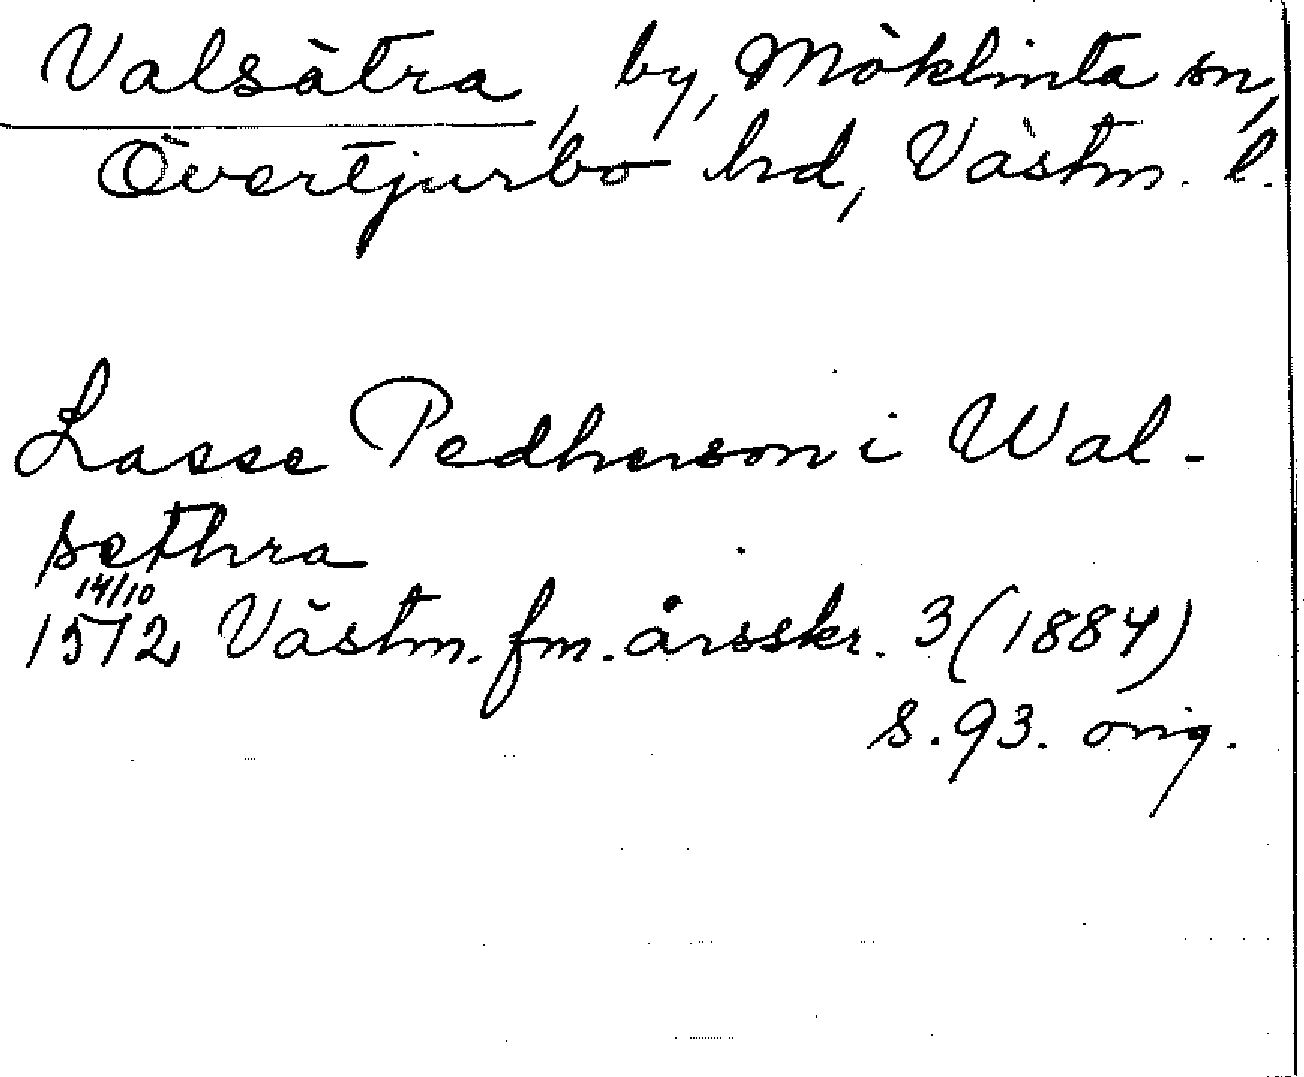 Valsätra, by, Möklinta sn,
Övertjurbo hd, Västm. l.
Lasse Pedherson i Wal-
sethra
14/10
1572 Västm. fm. årsskr. 3 (1884)
s. 93. orig.